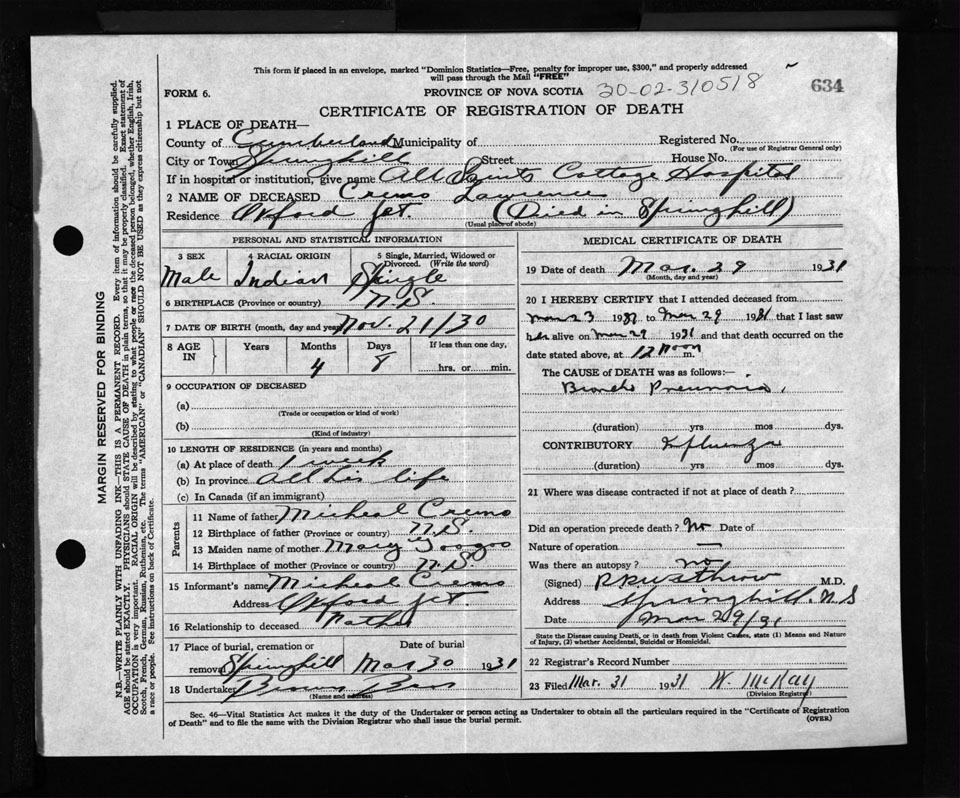 This form if placed in an envelope, marked "Dominion Statistics—Free, penalty for improper use, $300," and properly addressed
will pass through the Mail "FREE"
FORM 6. PROVINCE OF NOVA SCOTIA 30-02-310518 634
CERTIFICATE OF REGISTRATION OF DEATH
1 PLACE OF DEATH—
County of Cumberland Municipality of Registered No.
(For use of Registrar General only)
City or Town Springhill Street House No.
If in hospital or institution, give name All Saints Cottage Hospital
2 NAME OF DECEASED Cremo Lawrence
Residence Oxford Jct. (Died in Springhill)
(Usual place of abode)
PERSONAL AND STATISTICAL INFORMATION
3 SEX 4 RACIAL ORIGIN 5 Single, Married, Widowed or
Divorced. (Write the word)
Male Indian Single
6 BIRTHPLACE (Province or country) N.S.
7 DATE OF BIRTH (month, day and year) Nov. 21/30
8 AGE IN Years Months Days If less than one day,
4 8 hrs. or min.
9 OCCUPATION OF DECEASED
(a)
(Trade or occupation or kind of work)
(b)
(Kind of industry)
10 LENGTH OF RESIDENCE (in years and months)
(a) At place of death 1 week
(b) In province all his life
(c) In Canada (if an immigrant)
Parents
11 Name of father Micheal Cremo
12 Birthplace of father (Province or country) N.S.
13 Maiden name of mother Mary Googoo
14 Birthplace of mother (Province or country) N.S.
15 Informant's name Micheal Cremo
Address Oxford Jct.
16 Relationship to deceased Father
17 Place of burial, cremation or Date of burial
removal Springhill Mar 30 1931
18 Undertaker Brown Bros
(Name and address)
MEDICAL CERTIFICATE OF DEATH
19 Date of death Mar. 29 1931
(Month, day and year)
20 I HEREBY CERTIFY that I attended deceased from
Mar 23 1931 to Mar 29 1931 that I last saw
him alive on Mar 29 1931 and that death occurred on the
date stated above, at 12 Noon m.
The CAUSE of DEATH was as follows:—
Broncho Pneumonia.
(duration) yrs mos dys.
CONTRIBUTORY Influenza
(duration) yrs mos dys.
21 Where was disease contracted if not at place of death?
Did an operation precede death? No Date of
Nature of operation —
Was there an autopsy? no
(Signed) M.D.
Address Springhill. N.S
Date Mar 29/31
State the Disease causing Death, or in death from Violent Causes, state (1) Means and Nature
of Injury, (2) whether Accidental, Suicidal or Homicidal.
22 Registrar's Record Number
23 Filed Mar. 31 1931 W. McKay
(Division Registrar)
Sec. 46—Vital Statistics Act makes it the duty of the Undertaker or person acting as Undertaker to obtain all the particulars required in the "Certificate of Registration
of Death" and to file the same with the Division Registrar who shall issue the burial permit. (OVER)
MARGIN RESERVED FOR BINDING
N.B.—WRITE PLAINLY WITH UNFADING INK—THIS IS A PERMANENT RECORD. Every item of information should be carefully supplied.
AGE should be stated EXACTLY. PHYSICIANS should STATE CAUSE OF DEATH in plain terms, so that it may be properly classified. Exact statement of
OCCUPATION is very important. RACIAL ORIGIN will be described by stating to what people or race the deceased person belonged, whether English, Irish,
Scotch, French, German, Russian, Ruthenian, etc. The terms "AMERICAN" or "CANADIAN" SHOULD NOT BE USED as they express citizenship but not
a race or people. See instructions on back of Certificate.